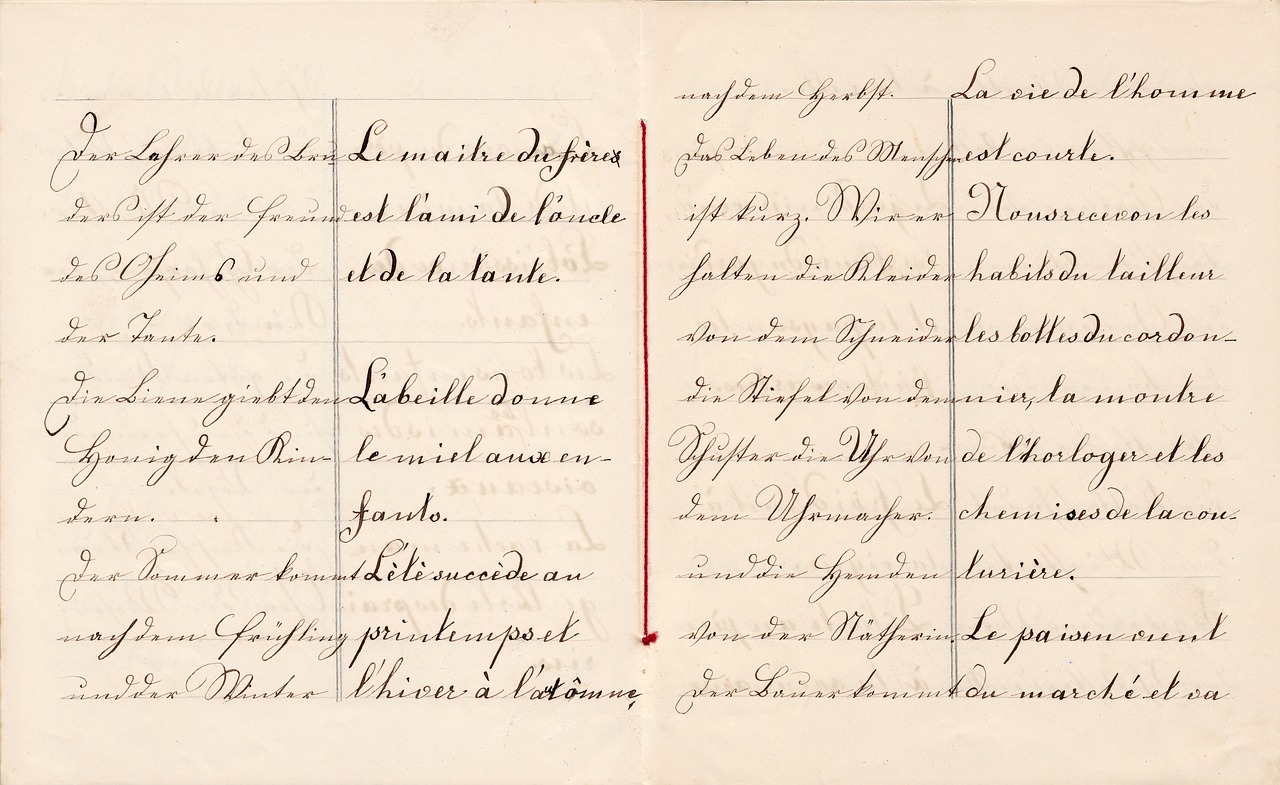 Der Lehrer des Bru
ders ist der Freund
des Oheims und
der Tante.
Die Biene giebt den
Honig den Kin-
dern.
Der Sommer kommt
nach dem Frühling
und der Winter
Le maitre du frère
est l'ami de l'oncle
et de la tante.
L'abeille donne
le miel aux en-
fants.
L'étè succède au
printemps et
l'hiver à l'atômne,
nach dem Herbst.
Das Leben des Menschen
ist kurz. Wir er
halten die Kleider
von dem Schneider
die Stiefel von dem
Schuster die Uhr von
dem Uhrmacher.
und die Hemden
von der Nätherin.
Der Bauer kommt
La vie de l'homme
est courte.
Nous recevon les
habits du tailleur
les bottes du cordon-
nier, la montre
de l'horloger et les
chemises de la cou-
turière.
Le paisen vient
du marché et va